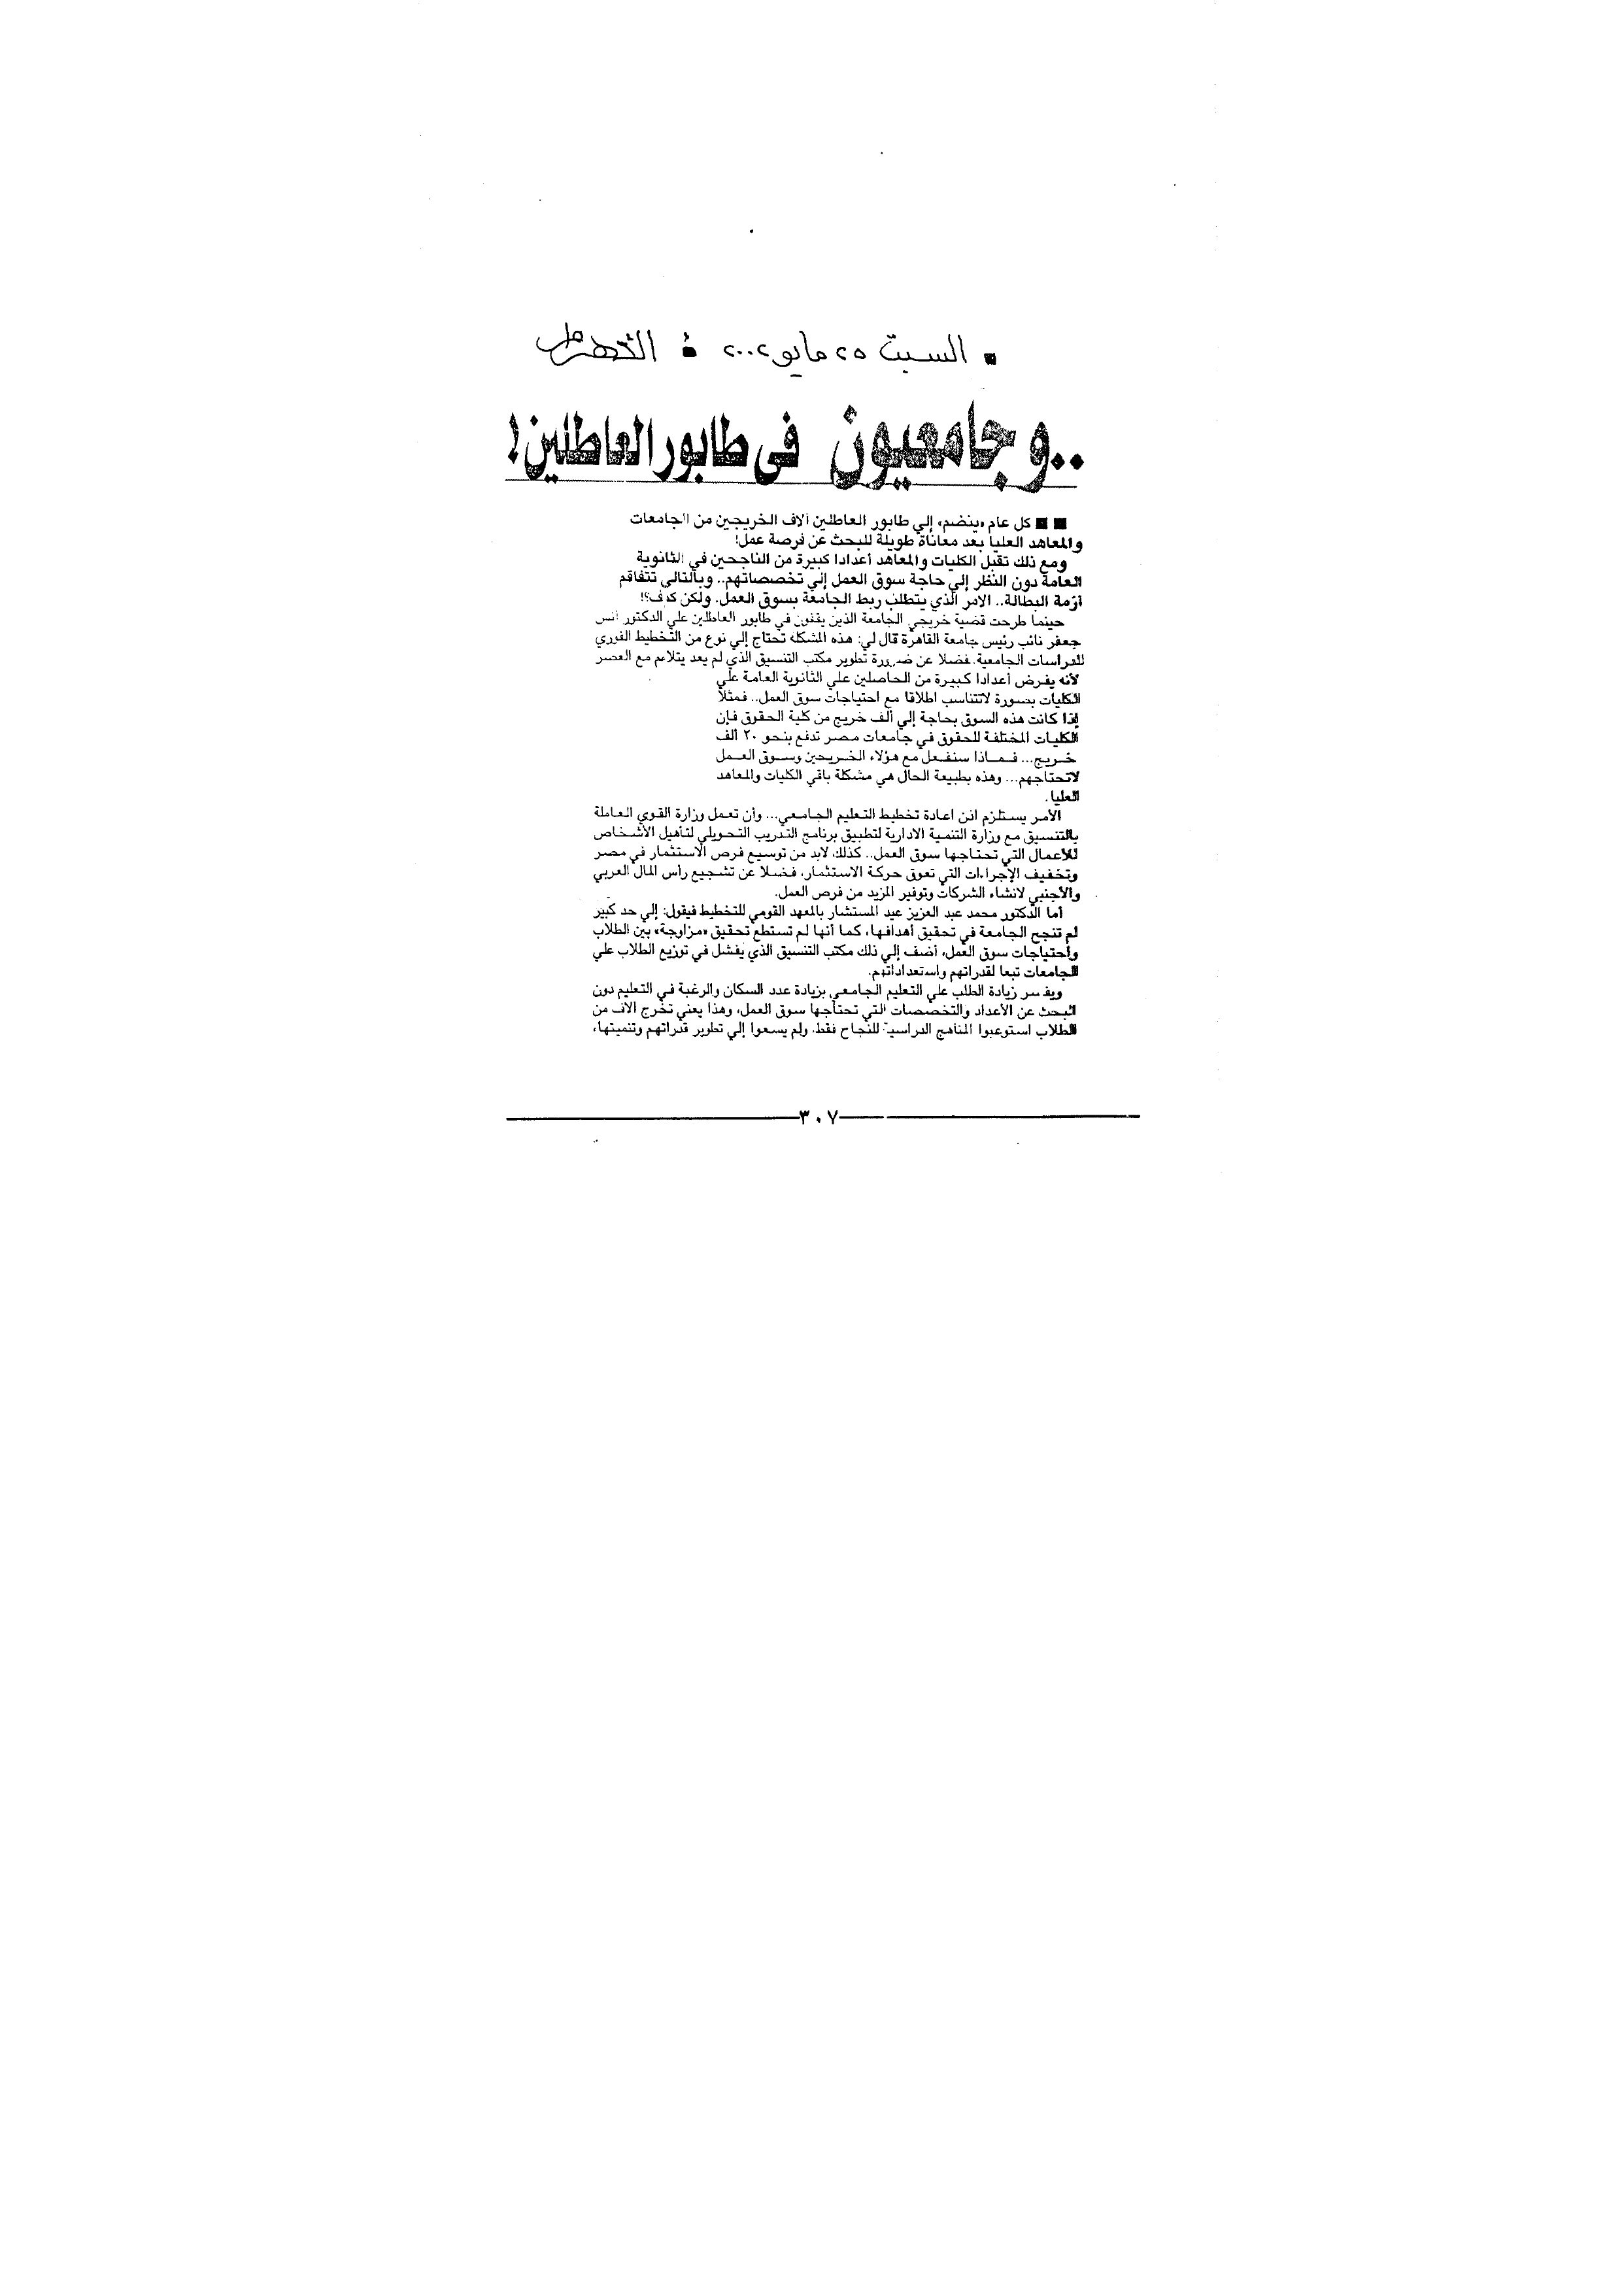 ▪ السبت ٢٥ مايو ٢٠٠٢ :
..و جامعيون في طابور العاطلين!
■ ■ كل عام «ينضم» إلي طابور العاطلين آلاف الخريجين من الجامعات
والمعاهد العليا بعد معاناة طويلة للبحث عن فرصة عمل!
ومع ذلك تقبل الكليات والمعاهد أعدادا كبيرة من الناجحين في الثانوية
العامة دون النظر إلي حاجة سوق العمل إلي تخصصاتهم.. وبالتالى تتفاقم
أزمة البطالة.. الامر الذي يتطلب ربط الجامعة بسوق العمل. ولكن كيف؟!
حينما طرحت قضية خريجي الجامعة الذين يقفون في طابور العاطلين علي الدكتور أنس
جعفر نائب رئيس جامعة القاهرة قال لي: هذه المشكلة تحتاج إلي نوع من التخطيط الفوري
للدراسات الجامعية. فضلا عن ضرورة تطوير مكتب التنسيق الذي لم يعد يتلاءم مع العصر
لأنه يفرض أعدادا كبيرة من الحاصلين علي الثانوية العامة علي
الكليات بصورة لاتتناسب اطلاقا مع احتياجات سوق العمل.. فمثلا
إذا كانت هذه السوق بحاجة إلي ألف خريج من كلية الحقوق فإن
الكليات المختلفة للحقوق في جامعات مصر تدفع بنحو ٢٠ ألف
خريج... فماذا سنفعل مع هؤلاء الخريجين وسوق العمل
لاتحتاجهم... وهذه بطبيعة الحال هي مشكلة باقي الكليات والمعاهد
العليا.
الأمر يستلزم اذن اعادة تخطيط التعليم الجامعي... وأن تعمل وزارة القوي العاملة
بالتنسيق مع وزارة التنمية الادارية لتطبيق برنامج التدريب التحويلي لتأهيل الأشخاص
للأعمال التي تحتاجها سوق العمل.. كذلك لابد من توسيع فرص الاستثمار في مصر
وتخفيف الإجراءات التي تعوق حركة الاستثمار، فضلا عن تشجيع رأس المال العربي
والأجنبي لانشاء الشركات وتوفير المزيد من فرص العمل.
أما الدكتور محمد عبد العزيز عيد المستشار بالمعهد القومي للتخطيط فيقول: إلي حد كبير
لم تنجح الجامعة في تحقيق أهدافها، كما أنها لم تستطع تحقيق «مزاوجة» بين الطلاب
وأحتياجات سوق العمل، أضف إلي ذلك مكتب التنسيق الذي يفشل في توزيع الطلاب علي
الجامعات تبعا لقدراتهم واستعداداتهم.
ويفسر زيادة الطلب علي التعليم الجامعي بزيادة عدد السكان والرغبة في التعليم دون
البحث عن الأعداد والتخصصات التي تحتاجها سوق العمل، وهذا يعني تخرج الاف من
الطلاب استوعبوا المناهج الدراسية للنجاح فقط، ولم يسعوا إلي تطوير قدراتهم وتنميتها،
٣٠٧